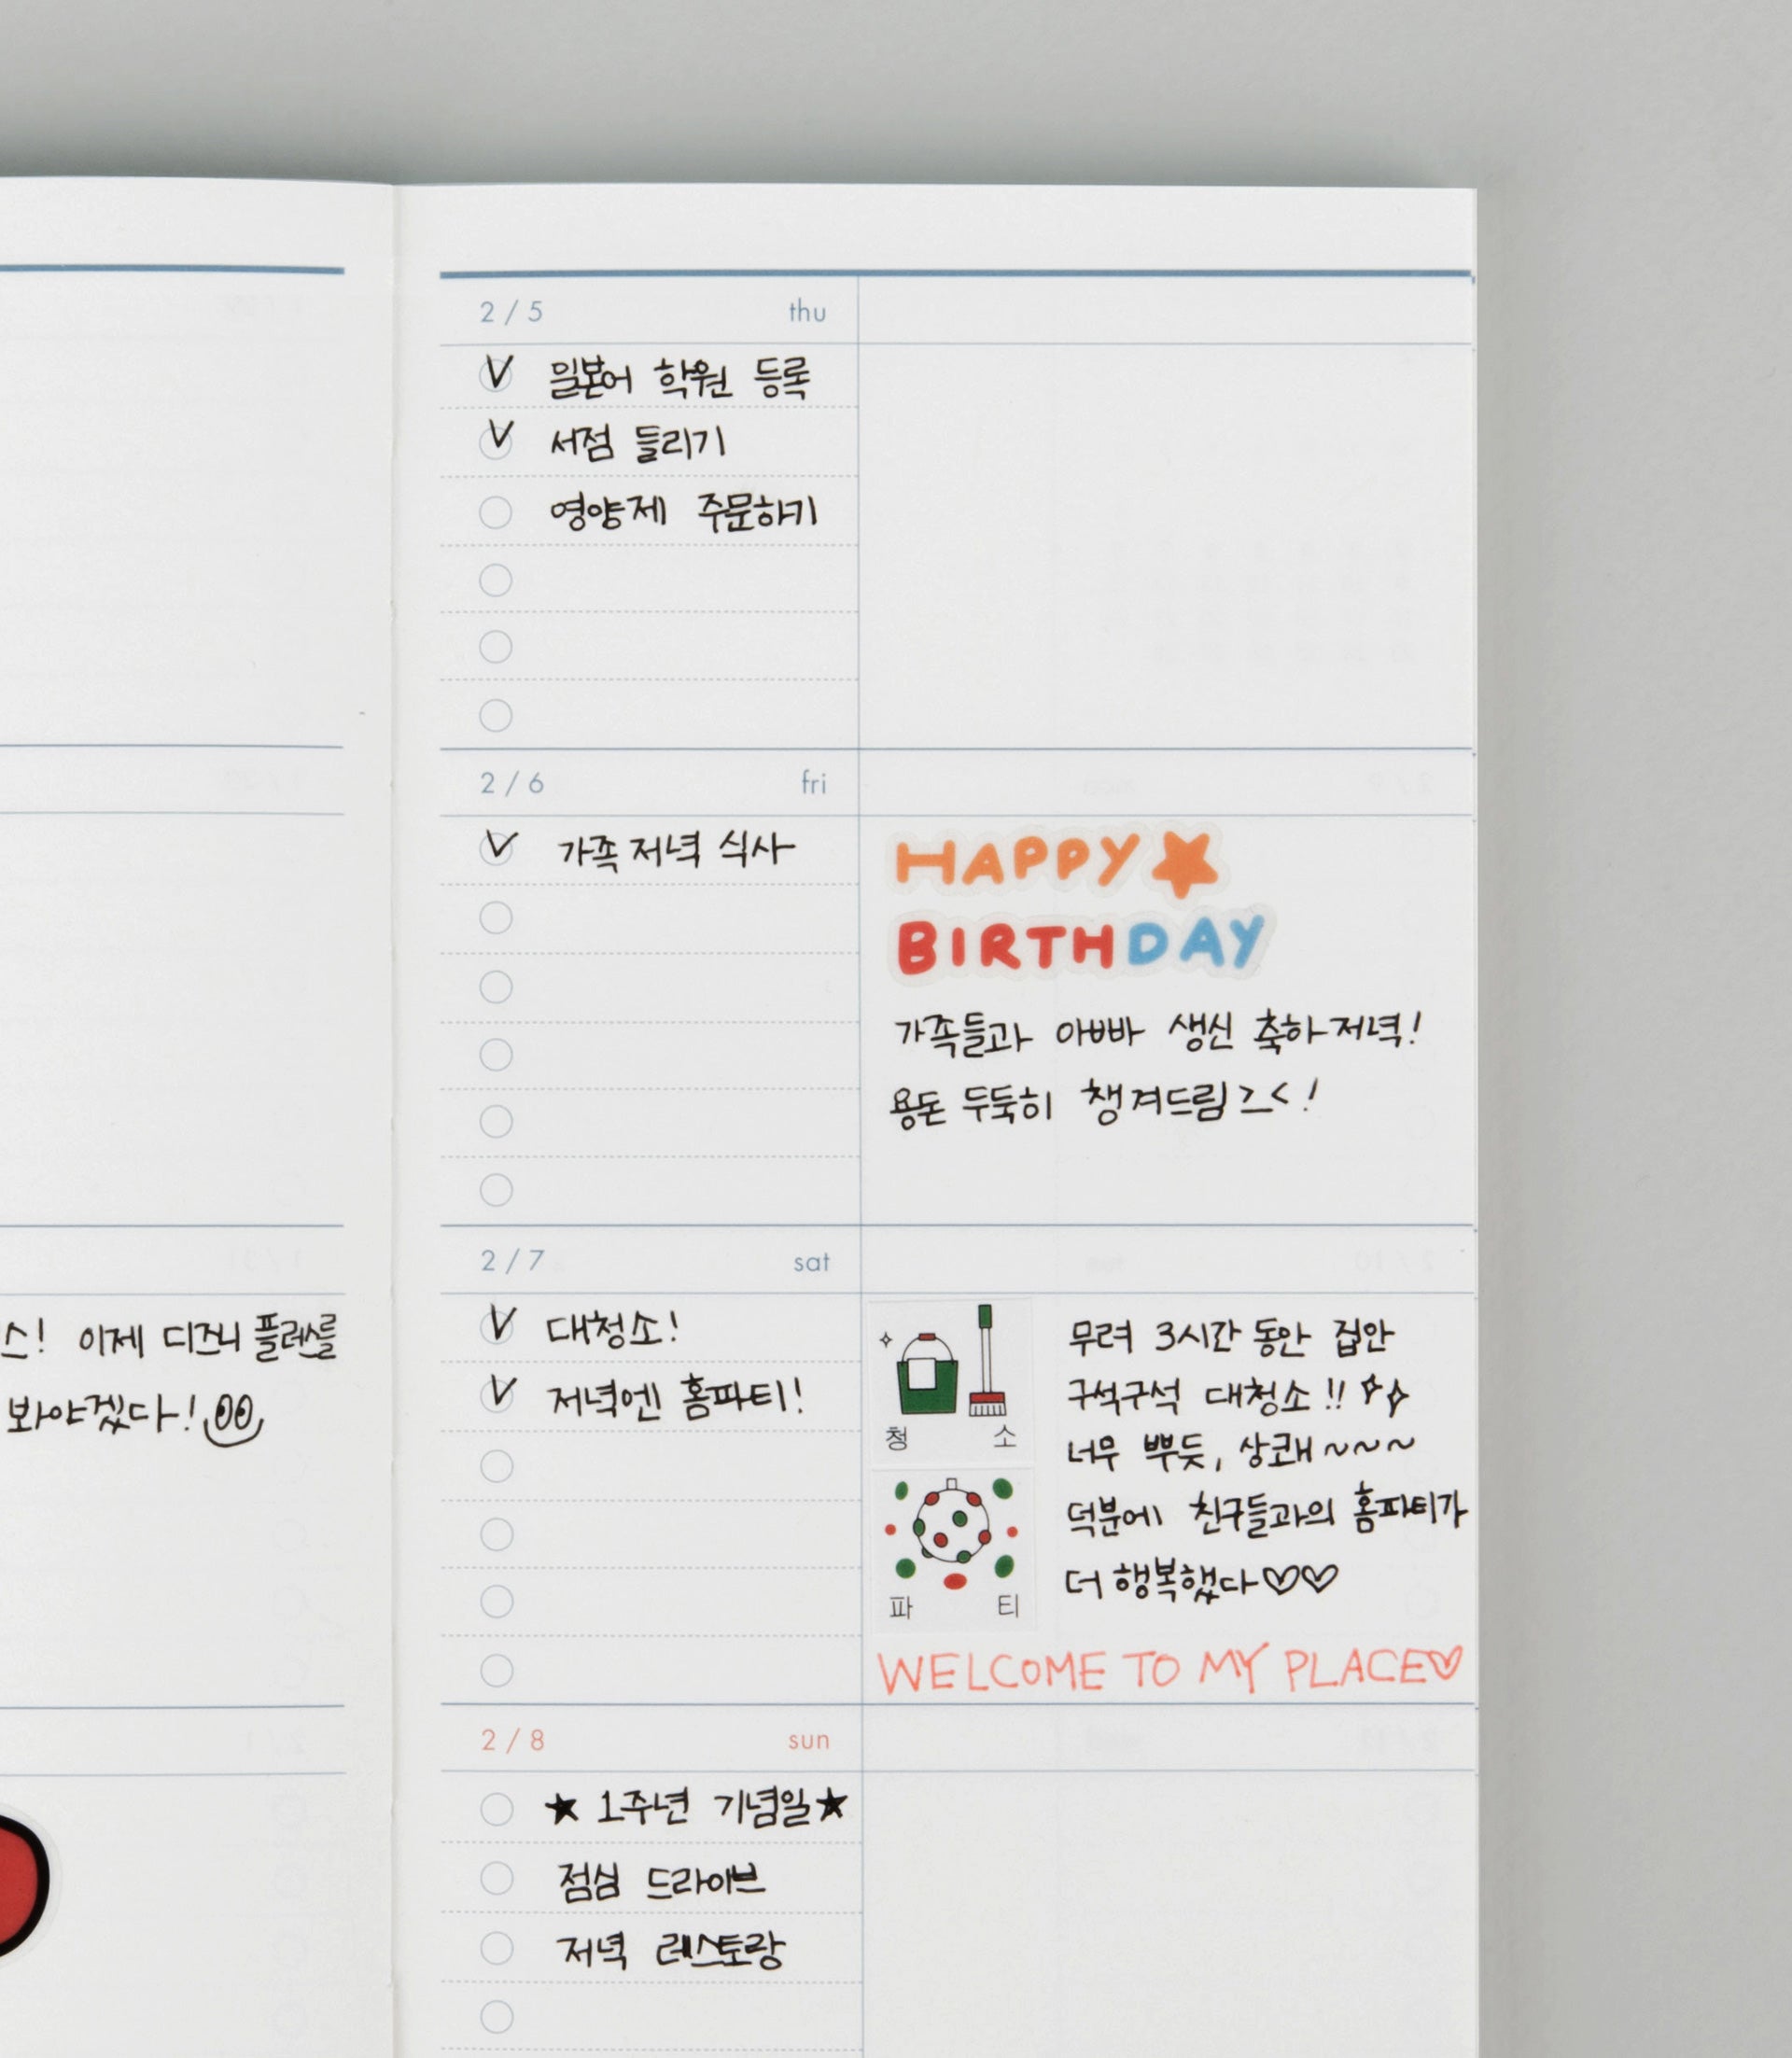 스! 이제 디즈니 플러스를
봐야겠다!
2 / 5 thu
V 일본어 학원 등록
V 서점 들리기
영양제 주문하기
2 / 6 fri
V 가족 저녁 식사
HAPPY
BIRTHDAY
가족들과 아빠 생신 축하 저녁!
용돈 두둑히 챙겨드림 >_< !
2 / 7 sat
V 대청소!
V 저녁엔 홈파티!
청 소
파 티
무려 3시간 동안 집안
구석구석 대청소!!
너무 뿌듯, 상쾌~~~
덕분에 친구들과의 홈파티가
더 행복했다♡♡
WELCOME TO MY PLACE♡
2 / 8 sun
★ 1주년 기념일★
점심 드라이브
저녁 레스토랑